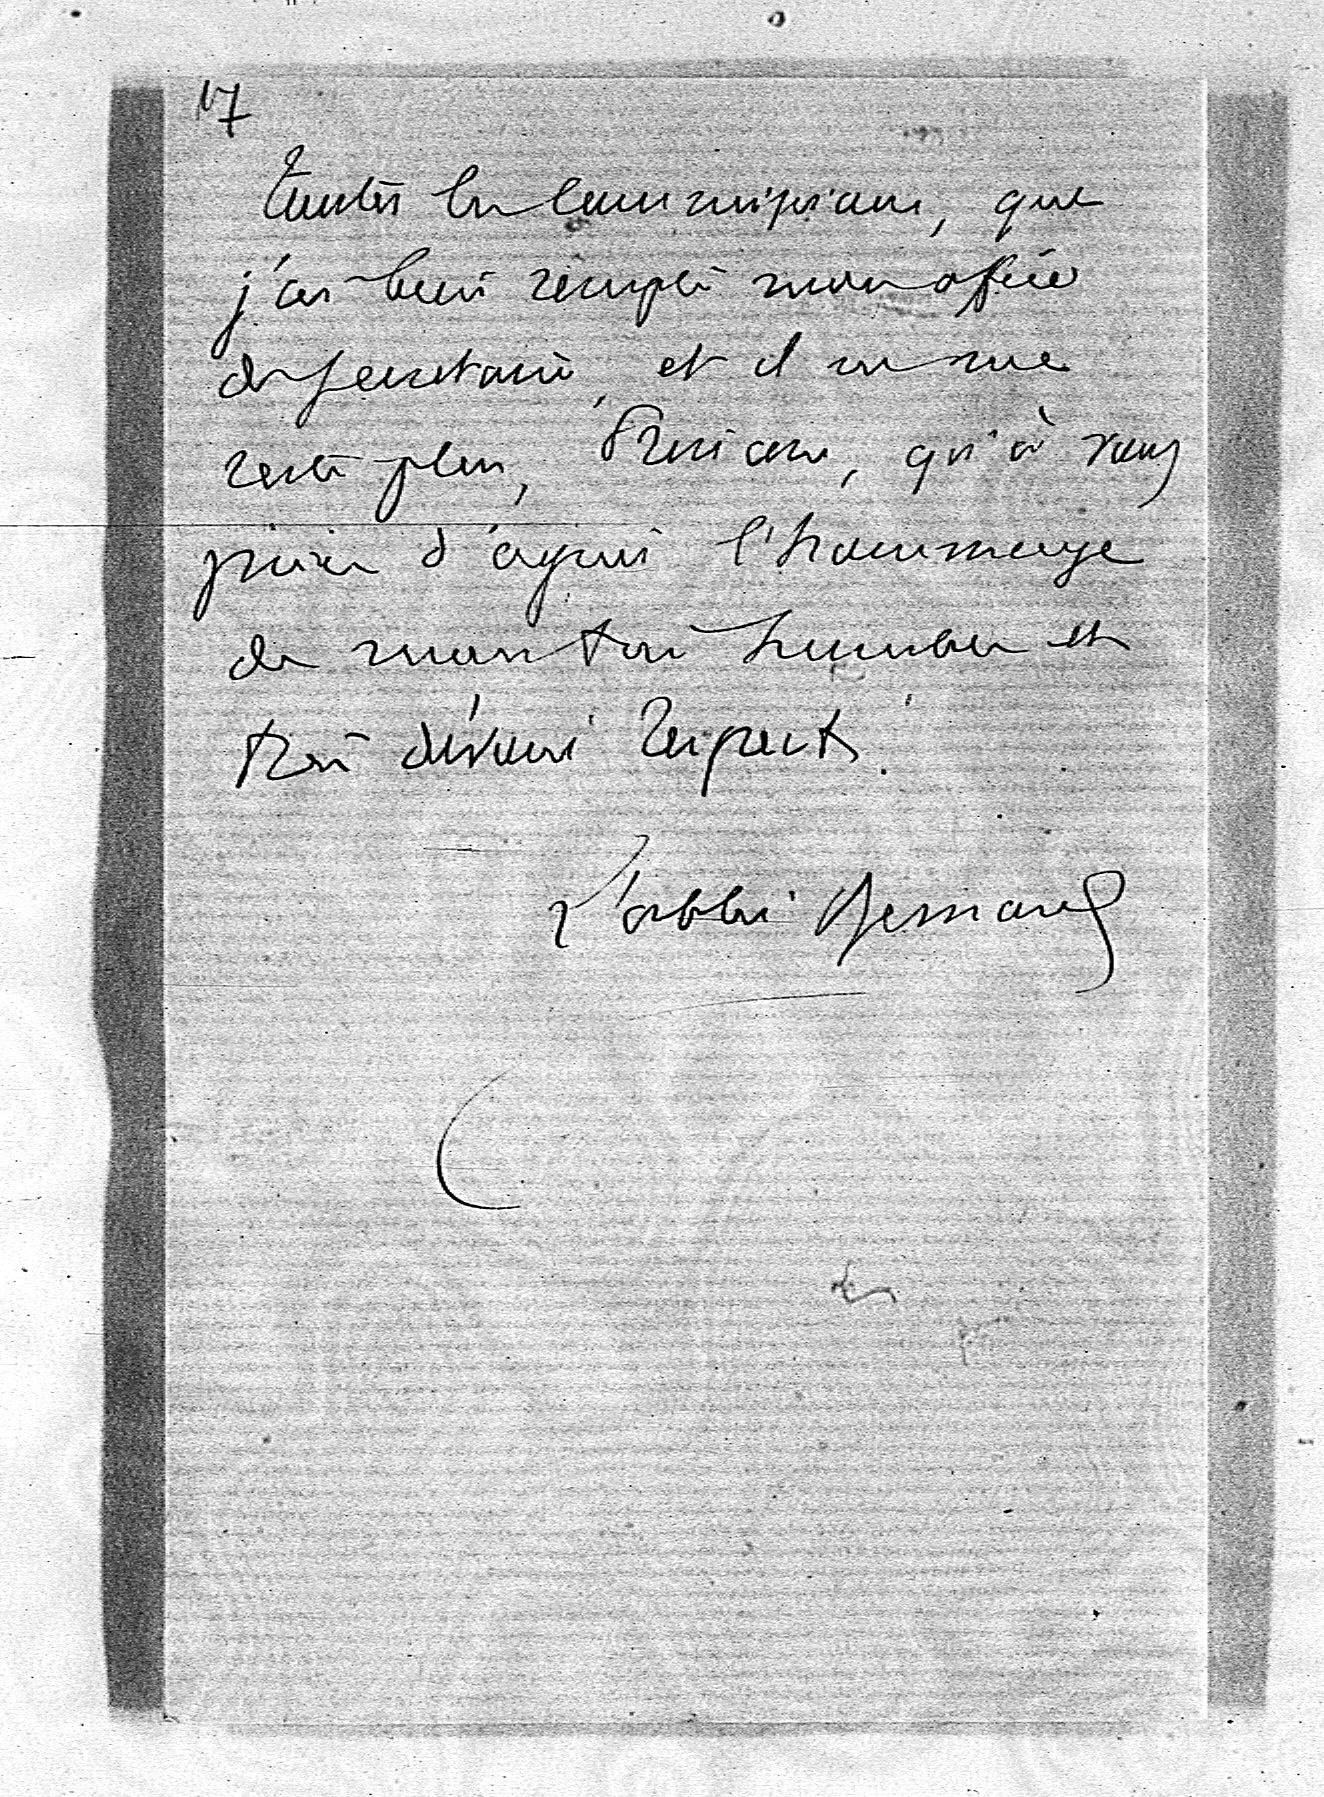 17
toutes les commissions, que
j'ai bien rempli mon office
de secrétaire, et il ne me
reste plus, Princesse, qu'à vous
prier d'agréer l'hommage
de mon très humble et
très dévoué respect.
L'abbé Bernard